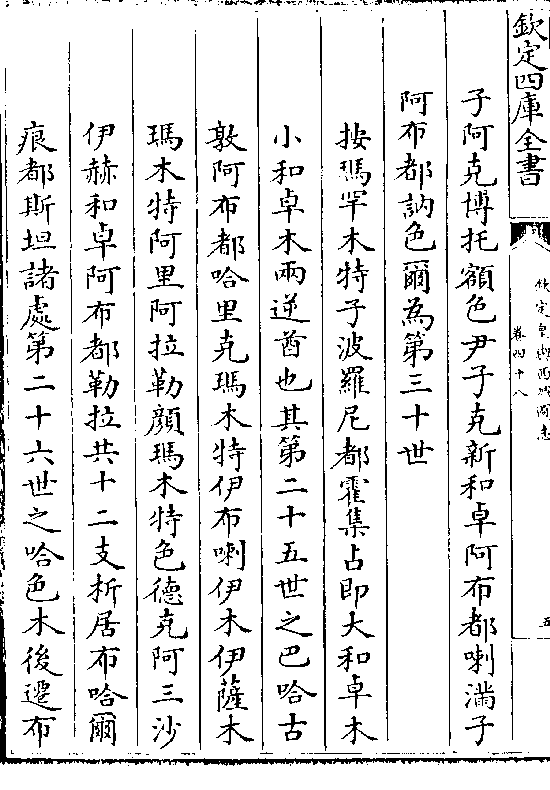 欽定四庫全書
欽定皇輿西域圖志
卷四十八
五
子阿克博托額色尹子克新和卓阿布都喇滿子
阿布都訥色爾為第三十世
按瑪罕木特子波羅尼都霍集占即大和卓木
小和卓木兩逆酋也其第二十五世之巴哈古
敦阿布都哈里克瑪木特伊布喇伊木伊薩木
瑪木特阿里阿拉勒顔瑪木特色德克阿三沙
伊赫和卓阿布都勒拉共十二支析居布哈爾
痕都斯坦諸處第二十六世之哈色木後遷布